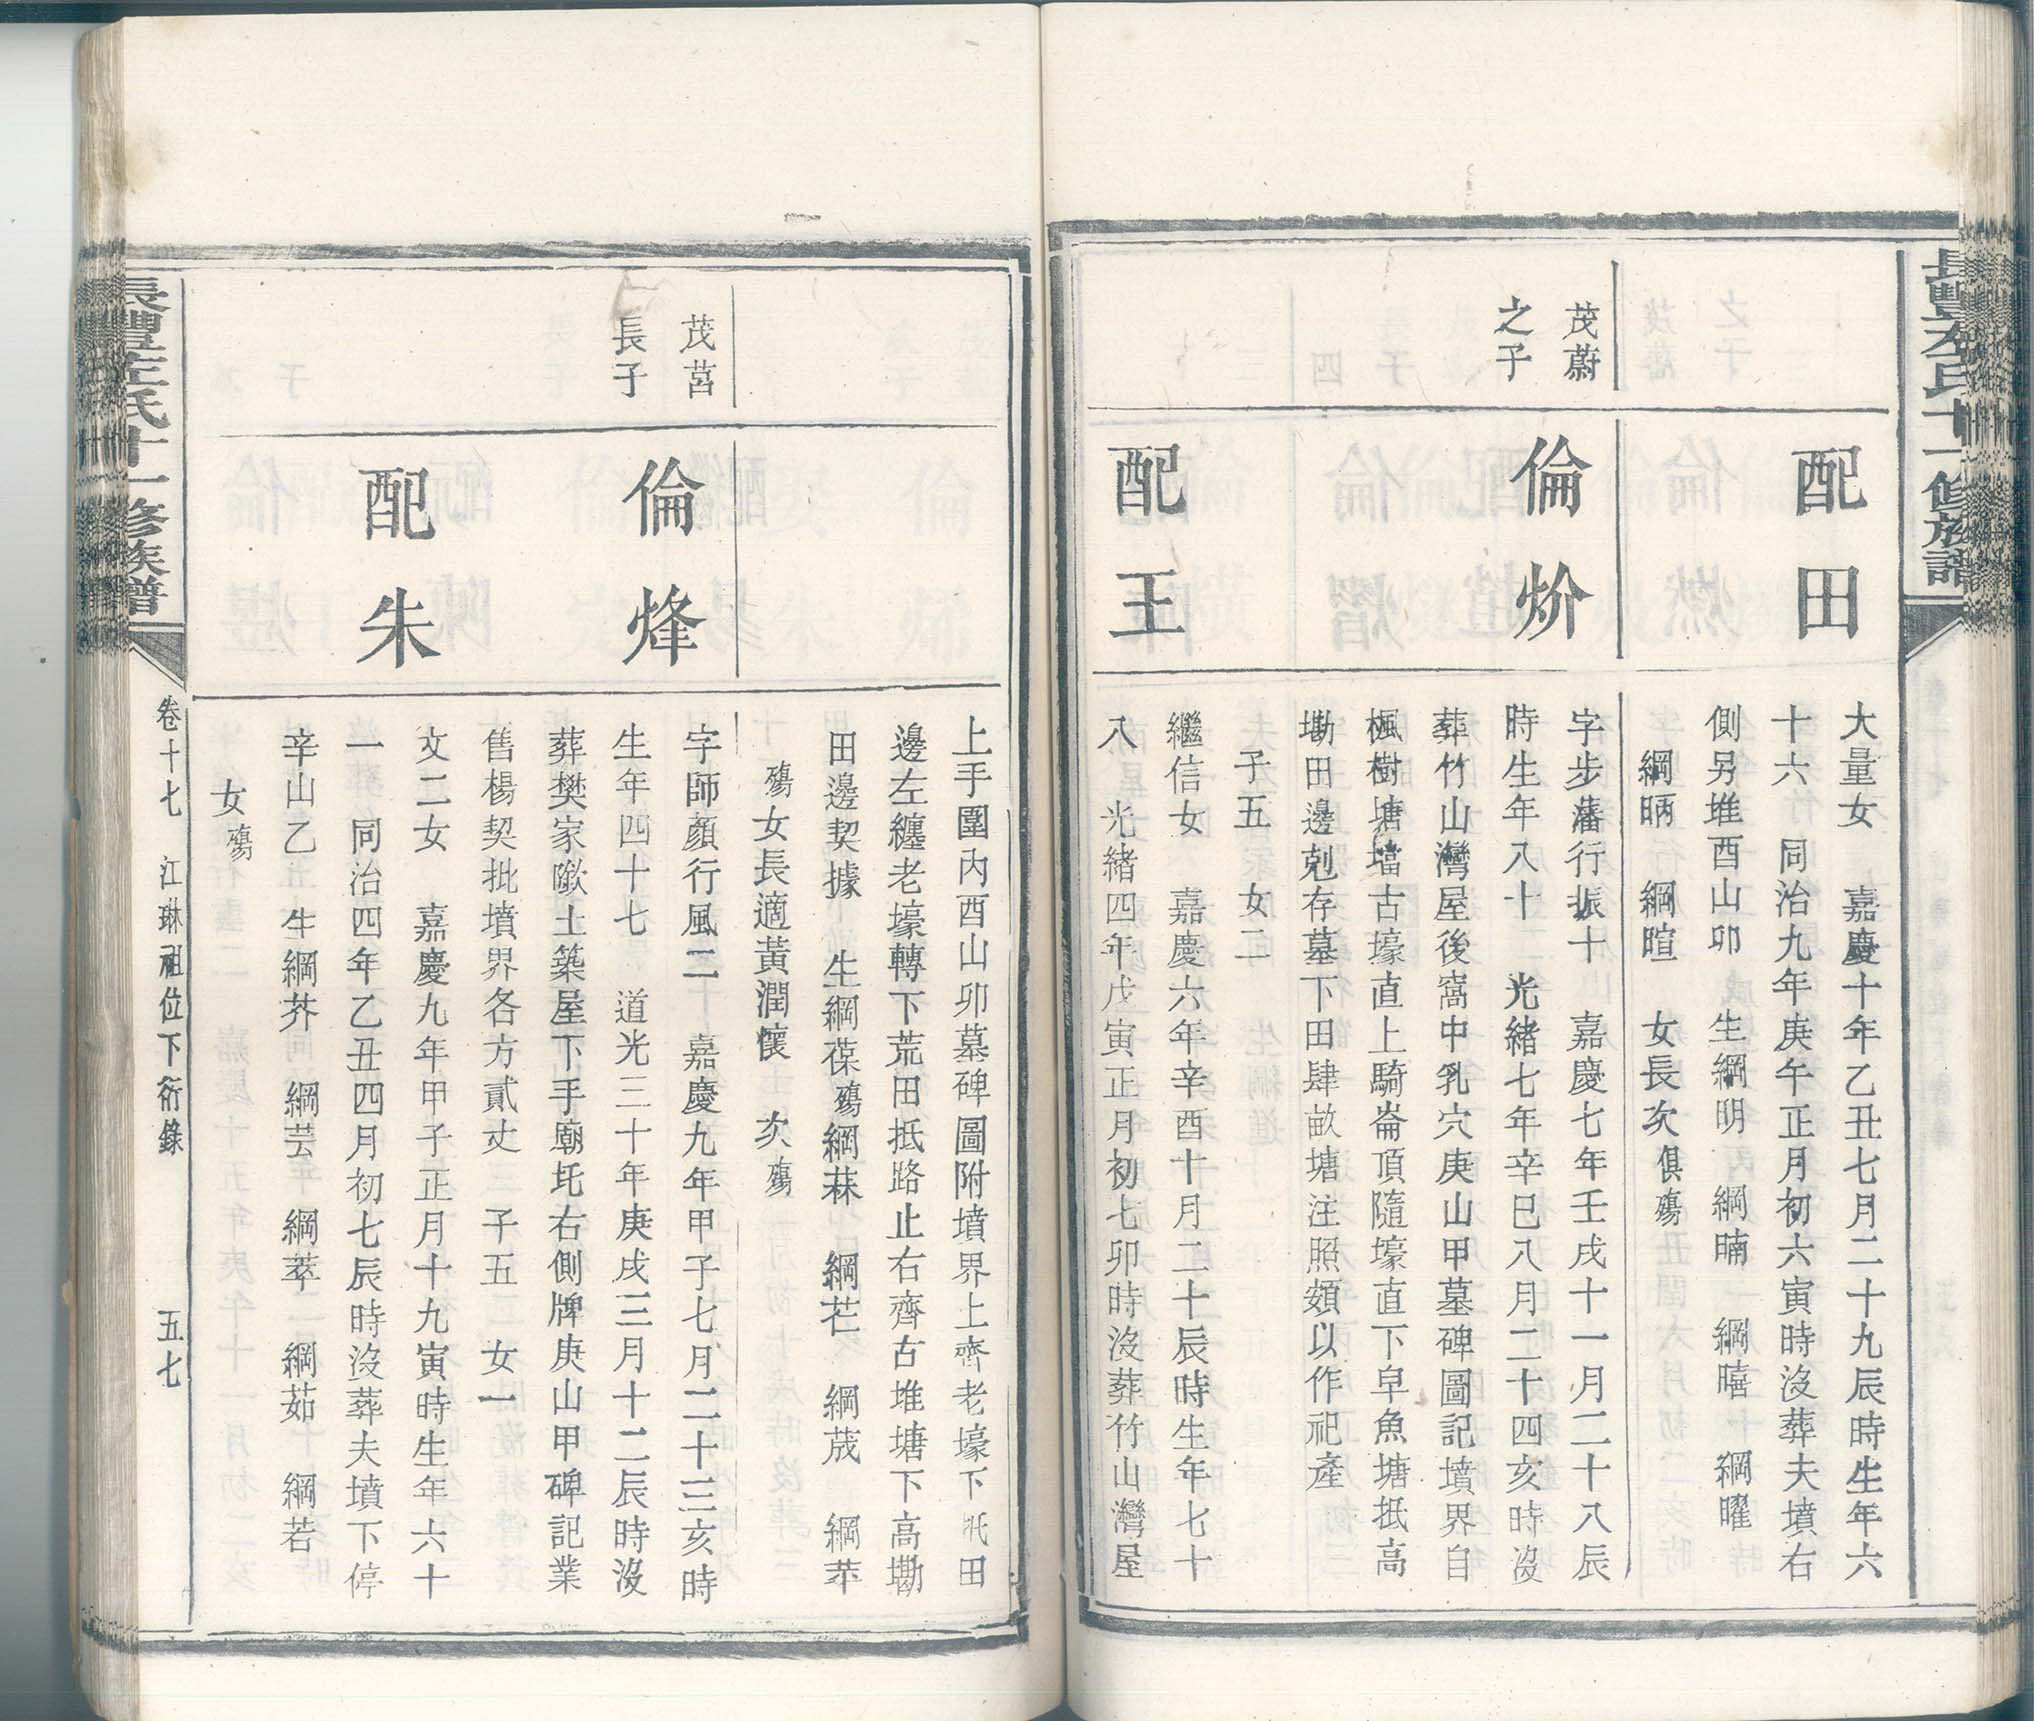 長豐左氏十一修族譜
配田
大量女　嘉慶十年乙丑七月二十九辰時生年六
十六　同治九年庚午正月初六寅時沒葬夫墳右
側另堆酉山卯　生綱明　綱暔　綱暿　綱曜
綱昞　綱暄　女長次俱殤
茂蔚
之子
倫炌
字步藩行振十　嘉慶七年壬戌十一月二十八辰
時生年八十　光緒七年辛巳八月二十四亥時沒
葬竹山灣屋後窩中乳穴庚山甲墓碑圖記墳界自
楓樹塘壋古壕直上騎崙頂隨壕直下皁魚塘抵高
墈田邊剋存墓下田肆畝塘注照額以作祀產
子五　女二
配王
繼信女　嘉慶六年辛酉十月二十辰時生年七十
八　光緒四年戊寅正月初七卯時沒葬竹山灣屋
上手圍內酉山卯墓碑圖附墳界上齊老壕下抵田
邊左纏老壕轉下荒田抵路止右齊古堆塘下高墈
田邊契據　生綱葆殤綱菻　綱芒　綱荿　綱苹
殤女長適黃潤懷　次殤
茂莒
長子
倫烽
字師顏行風二　嘉慶九年甲子七月二十三亥時
生年四十七　道光三十年庚戌三月十二辰時沒
葬樊家墩土築屋下手廟圫右側牌庚山甲碑記業
售楊契批墳界各方貳丈　子五　女一
配朱
文二女　嘉慶九年甲子正月十九寅時生年六十
一　同治四年乙丑四月初七辰時沒葬夫墳下停
辛山乙　生綱芥　綱芸　綱萃　綱茹　綱若
女殤
長豐左氏十一修族譜
卷十七　江琳祖位下衍錄　五七